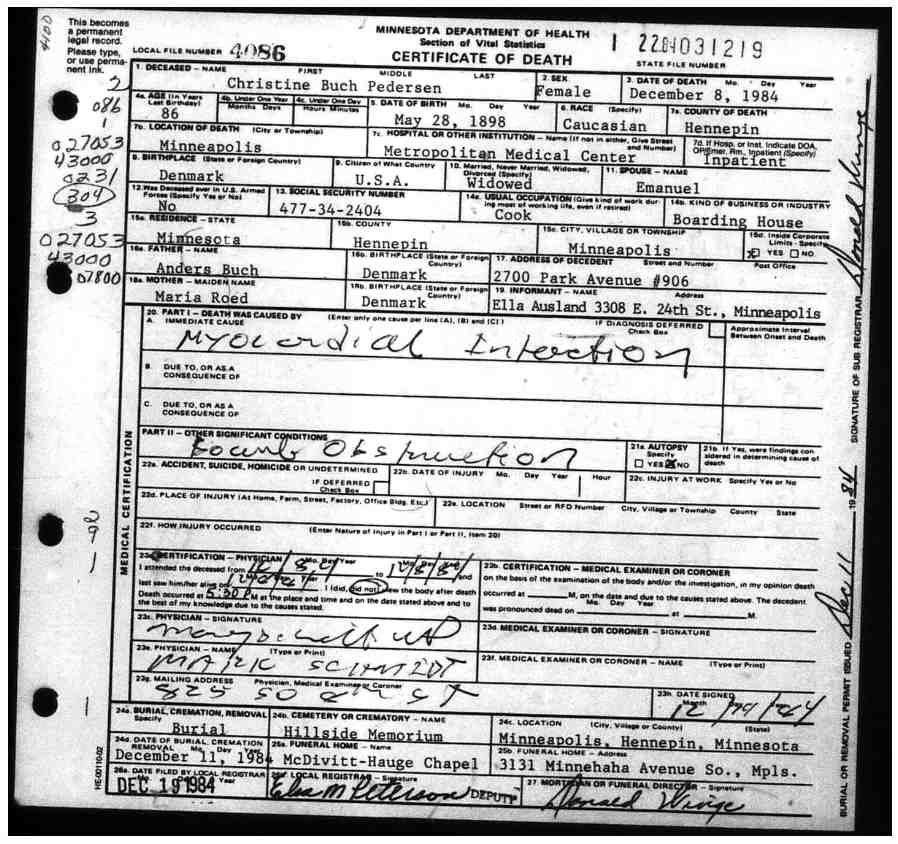 This becomes
a permanent
legal record.
Please type,
or use perma-
nent ink.
4100
MINNESOTA DEPARTMENT OF HEALTH
Section of Vital Statistics
CERTIFICATE OF DEATH
LOCAL FILE NUMBER 4086
STATE FILE NUMBER
1. DECEASED – NAME FIRST MIDDLE LAST
Christine Buch Pedersen
2. SEX
Female
3. DATE OF DEATH Mo. Day Year
December 8, 1984
4a. AGE (In Years Last Birthday)
86
4b. Under One Year Months Days
4c. Under One Day Hours Minutes
5. DATE OF BIRTH Mo. Day Year
May 28, 1898
6. RACE (Specify)
Caucasian
7a. COUNTY OF DEATH
Hennepin
7b. LOCATION OF DEATH (City or Township)
Minneapolis
7c. HOSPITAL OR OTHER INSTITUTION – Name (If not in either, Give Street and Number)
Metropolitan Medical Center
7d. If Hosp. or Inst. Indicate DOA, OP/Emer. Rm., Inpatient (Specify)
Inpatient
8. BIRTHPLACE (State or Foreign Country)
Denmark
9. Citizen of What Country
U.S.A.
10. Married, Never Married, Widowed, Divorced (Specify)
Widowed
11. SPOUSE – NAME
Emanuel
12. Was Deceased ever in U.S. Armed Forces (Specify Yes or No)
No
13. SOCIAL SECURITY NUMBER
477-34-2404
14a. USUAL OCCUPATION (Give kind of work during most of working life, even if retired)
Cook
14b. KIND OF BUSINESS OR INDUSTRY
Boarding House
15a. RESIDENCE – STATE
Minnesota
15b. COUNTY
Hennepin
15c. CITY, VILLAGE OR TOWNSHIP
Minneapolis
15d. Inside Corporate Limits - Specify
YES NO
16a. FATHER – NAME
Anders Buch
16b. BIRTHPLACE (State or Foreign Country)
Denmark
17. ADDRESS OF DECEDENT Street and Number Post Office
2700 Park Avenue #906
18a. MOTHER – MAIDEN NAME
Maria Roed
18b. BIRTHPLACE (State or Foreign Country)
Denmark
19. INFORMANT – NAME Address
Ella Ausland 3308 E. 24th St., Minneapolis
20. PART I – DEATH WAS CAUSED BY (Enter only one cause per line (A), (B) and (C) )
A. IMMEDIATE CAUSE
IF DIAGNOSIS DEFERRED Check Box
Approximate Interval Between Onset and Death
Myocardial Infarction
B. DUE TO, OR AS A CONSEQUENCE OF
C. DUE TO, OR AS A CONSEQUENCE OF
PART II – OTHER SIGNIFICANT CONDITIONS
Bowel Obstruction
21a. AUTOPSY Specify
YES NO
21b. If Yes, were findings considered in determining cause of death
22a. ACCIDENT, SUICIDE, HOMICIDE OR UNDETERMINED
IF DEFERRED Check Box
22b. DATE OF INJURY Mo. Day Year Hour
22c. INJURY AT WORK Specify Yes or No
22d. PLACE OF INJURY (At Home, Farm, Street, Factory, Office Bldg. Etc.)
22e. LOCATION Street or RFD Number City, Village or Township County State
22f. HOW INJURY OCCURRED (Enter Nature of Injury in Part I or Part II, Item 20)
MEDICAL CERTIFICATION
CERTIFICATION – PHYSICIAN Mo. Day Year
I attended the deceased from to and
last saw him/her alive on I (did, did not) view the body after death
Death occurred at 5:30 P M at the place and time and on the date stated above and to
the best of my knowledge due to the causes stated.
23b. CERTIFICATION – MEDICAL EXAMINER OR CORONER
on the basis of the examination of the body and/or the investigation, in my opinion death
occurred at M, on the date and due to the causes stated above. The decedent
was pronounced dead on Mo. Day Year at M.
23c. PHYSICIAN – SIGNATURE
23d. MEDICAL EXAMINER OR CORONER – SIGNATURE
23e. PHYSICIAN – NAME (Type or Print)
MARK SCHMIDT
23f. MEDICAL EXAMINER OR CORONER – NAME (Type or Print)
23g. MAILING ADDRESS Physician, Medical Examiner or Coroner
825 SO 8th ST
23h. DATE SIGNED
24a. BURIAL, CREMATION, REMOVAL Specify
Burial
24b. CEMETERY OR CREMATORY – NAME
Hillside Memorium
24c. LOCATION (City, Village or County) (State)
Minneapolis, Hennepin, Minnesota
24d. DATE OF BURIAL, CREMATION REMOVAL Mo. Day Year
December 11, 1984
25a. FUNERAL HOME – Name
McDivitt-Hauge Chapel
25b. FUNERAL HOME – Address
3131 Minnehaha Avenue So., Mpls.
26a. DATE FILED BY LOCAL REGISTRAR Day Year
DEC 19 1984
LOCAL REGISTRAR – Signature
Elsa M Peterson DEPUTY
27 MORTICIAN OR FUNERAL DIRECTOR – Signature
Donald Winge
HE-00110-02
BURIAL OR REMOVAL PERMIT ISSUED Dec 11 1984 SIGNATURE OF SUB REGISTRAR Donald Winge
2
086
1
027053
43000
0231
304
3
027053
43000
07800
2
9
1
1